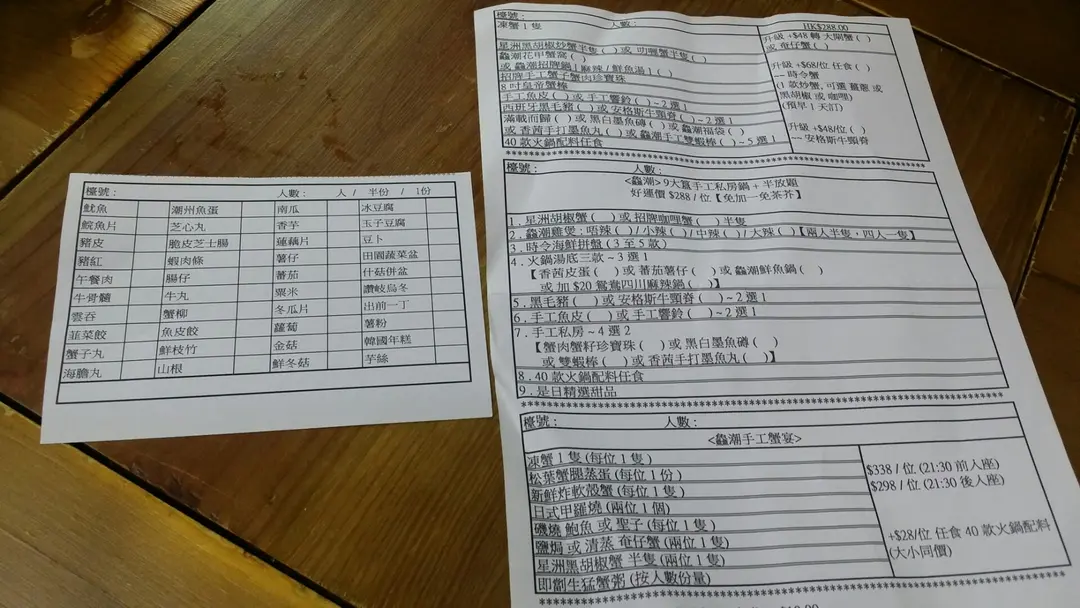 檯號 : 人數 : 人 / 半份 / 1份
魷魚 潮州魚蛋 南瓜 冰豆腐
鯇魚片 芝心丸 香芋 玉子豆腐
豬皮 脆皮芝士腸 蓮藕片 豆卜
豬紅 蝦肉條 薯仔 田園蔬菜盆
午餐肉 腸仔 蕃茄 什菇併盆
牛骨髓 牛丸 粟米 讚岐烏冬
雲吞 蟹柳 冬瓜片 出前一丁
韮菜餃 魚皮餃 蘿蔔 薯粉
蟹子丸 鮮枝竹 金菇 韓國年糕
海膽丸 山根 鮮冬菇 芋絲
檯號 : 人數 : HK$288.00
凍蟹 1 隻
星洲黑胡椒炒蟹半隻 ( ) 或 叻喱蟹半隻 ( )
蟲潮花甲蟹窩 ( )
或 蟲潮招牌鍋 [ 麻辣 / 鮮魚湯 ] ( )
招牌手工蟹子蟹肉珍寶珠
8 吋皇帝蟹棒
手工魚皮 ( ) 或 手工響鈴 ( ) ~ 2 選 1
西班牙黑毛豬 ( ) 或 安格斯牛頸脊 ( ) ~ 2 選 1
滿載而歸 ( ) 或 黑白墨魚磚 ( )
或 香茜手打墨魚丸 ( ) 或 蟲潮福袋 ( )
或 蟲潮手工雙蝦棒 ( ) ~ 5 選 1
40 款火鍋配料任食
升級 +$48 轉 大閘蟹 ( )
或 奄仔蟹 ( )
升級 +$68/位 任食 ( )
-- 時令蟹
(1 款炒蟹, 可選 薑蔥 或
黑胡椒 或 咖喱)
(預早 1 天訂)
升級 +$48/位 ( )
-- 安格斯牛頸脊
檯號 : 人數 :
<蟲潮> 9大簋手工私房鍋 + 半放題
好運價 $288 / 位【免加一免茶芥】
1 . 星洲胡椒蟹 ( ) 或 招牌咖喱蟹 ( ) 半隻
2 . 蟲潮雞煲 : 唔辣 ( ) / 小辣 ( ) / 中辣 ( ) / 大辣 ( )【兩人半隻，四人一隻】
3 . 時令海鮮拼盤 ( 3 至 5 款 )
4 . 火鍋湯底三款 ~ 3 選 1
【 香茜皮蛋 ( ) 或 蕃茄薯仔 ( ) 或 蟲潮鮮魚鍋 ( )
或 加 $20 鴛鴦四川麻辣鍋 ( ) 】
5 . 黑毛豬 ( ) 或 安格斯牛頸脊 ( ) ~ 2 選 1
6 . 手工魚皮 ( ) 或 手工響鈴 ( ) ~ 2 選 1
7 . 手工私房 ~ 4 選 2
【 蟹肉蟹籽珍寶珠 ( ) 或 黑白墨魚磚 ( )
或 雙蝦棒 ( ) 或 香茜手打墨魚丸 ( ) 】
8 . 40 款火鍋配料任食
9 . 是日精選甜品
檯號 : 人數 :
<蟲潮手工蟹宴>
凍蟹 1 隻 (每位 1 隻 )
松葉蟹腿蒸蛋 (每位 1 份 )
新鮮炸軟殼蟹 (每位 1 隻 )
日式甲羅燒 (兩位 1 個)
磯燒 鮑魚 或 聖子 (每位 1 隻 )
鹽焗 或 清蒸 奄仔蟹 (兩位 1 隻)
星洲黑胡椒蟹 半隻 (兩位 1 隻)
即劏生猛蟹粥 (按人數份量)
$338 / 位 (21:30 前入座)
$298 / 位 (21:30 後入座)
+$28/位 任食 40 款火鍋配料
(大小同價)